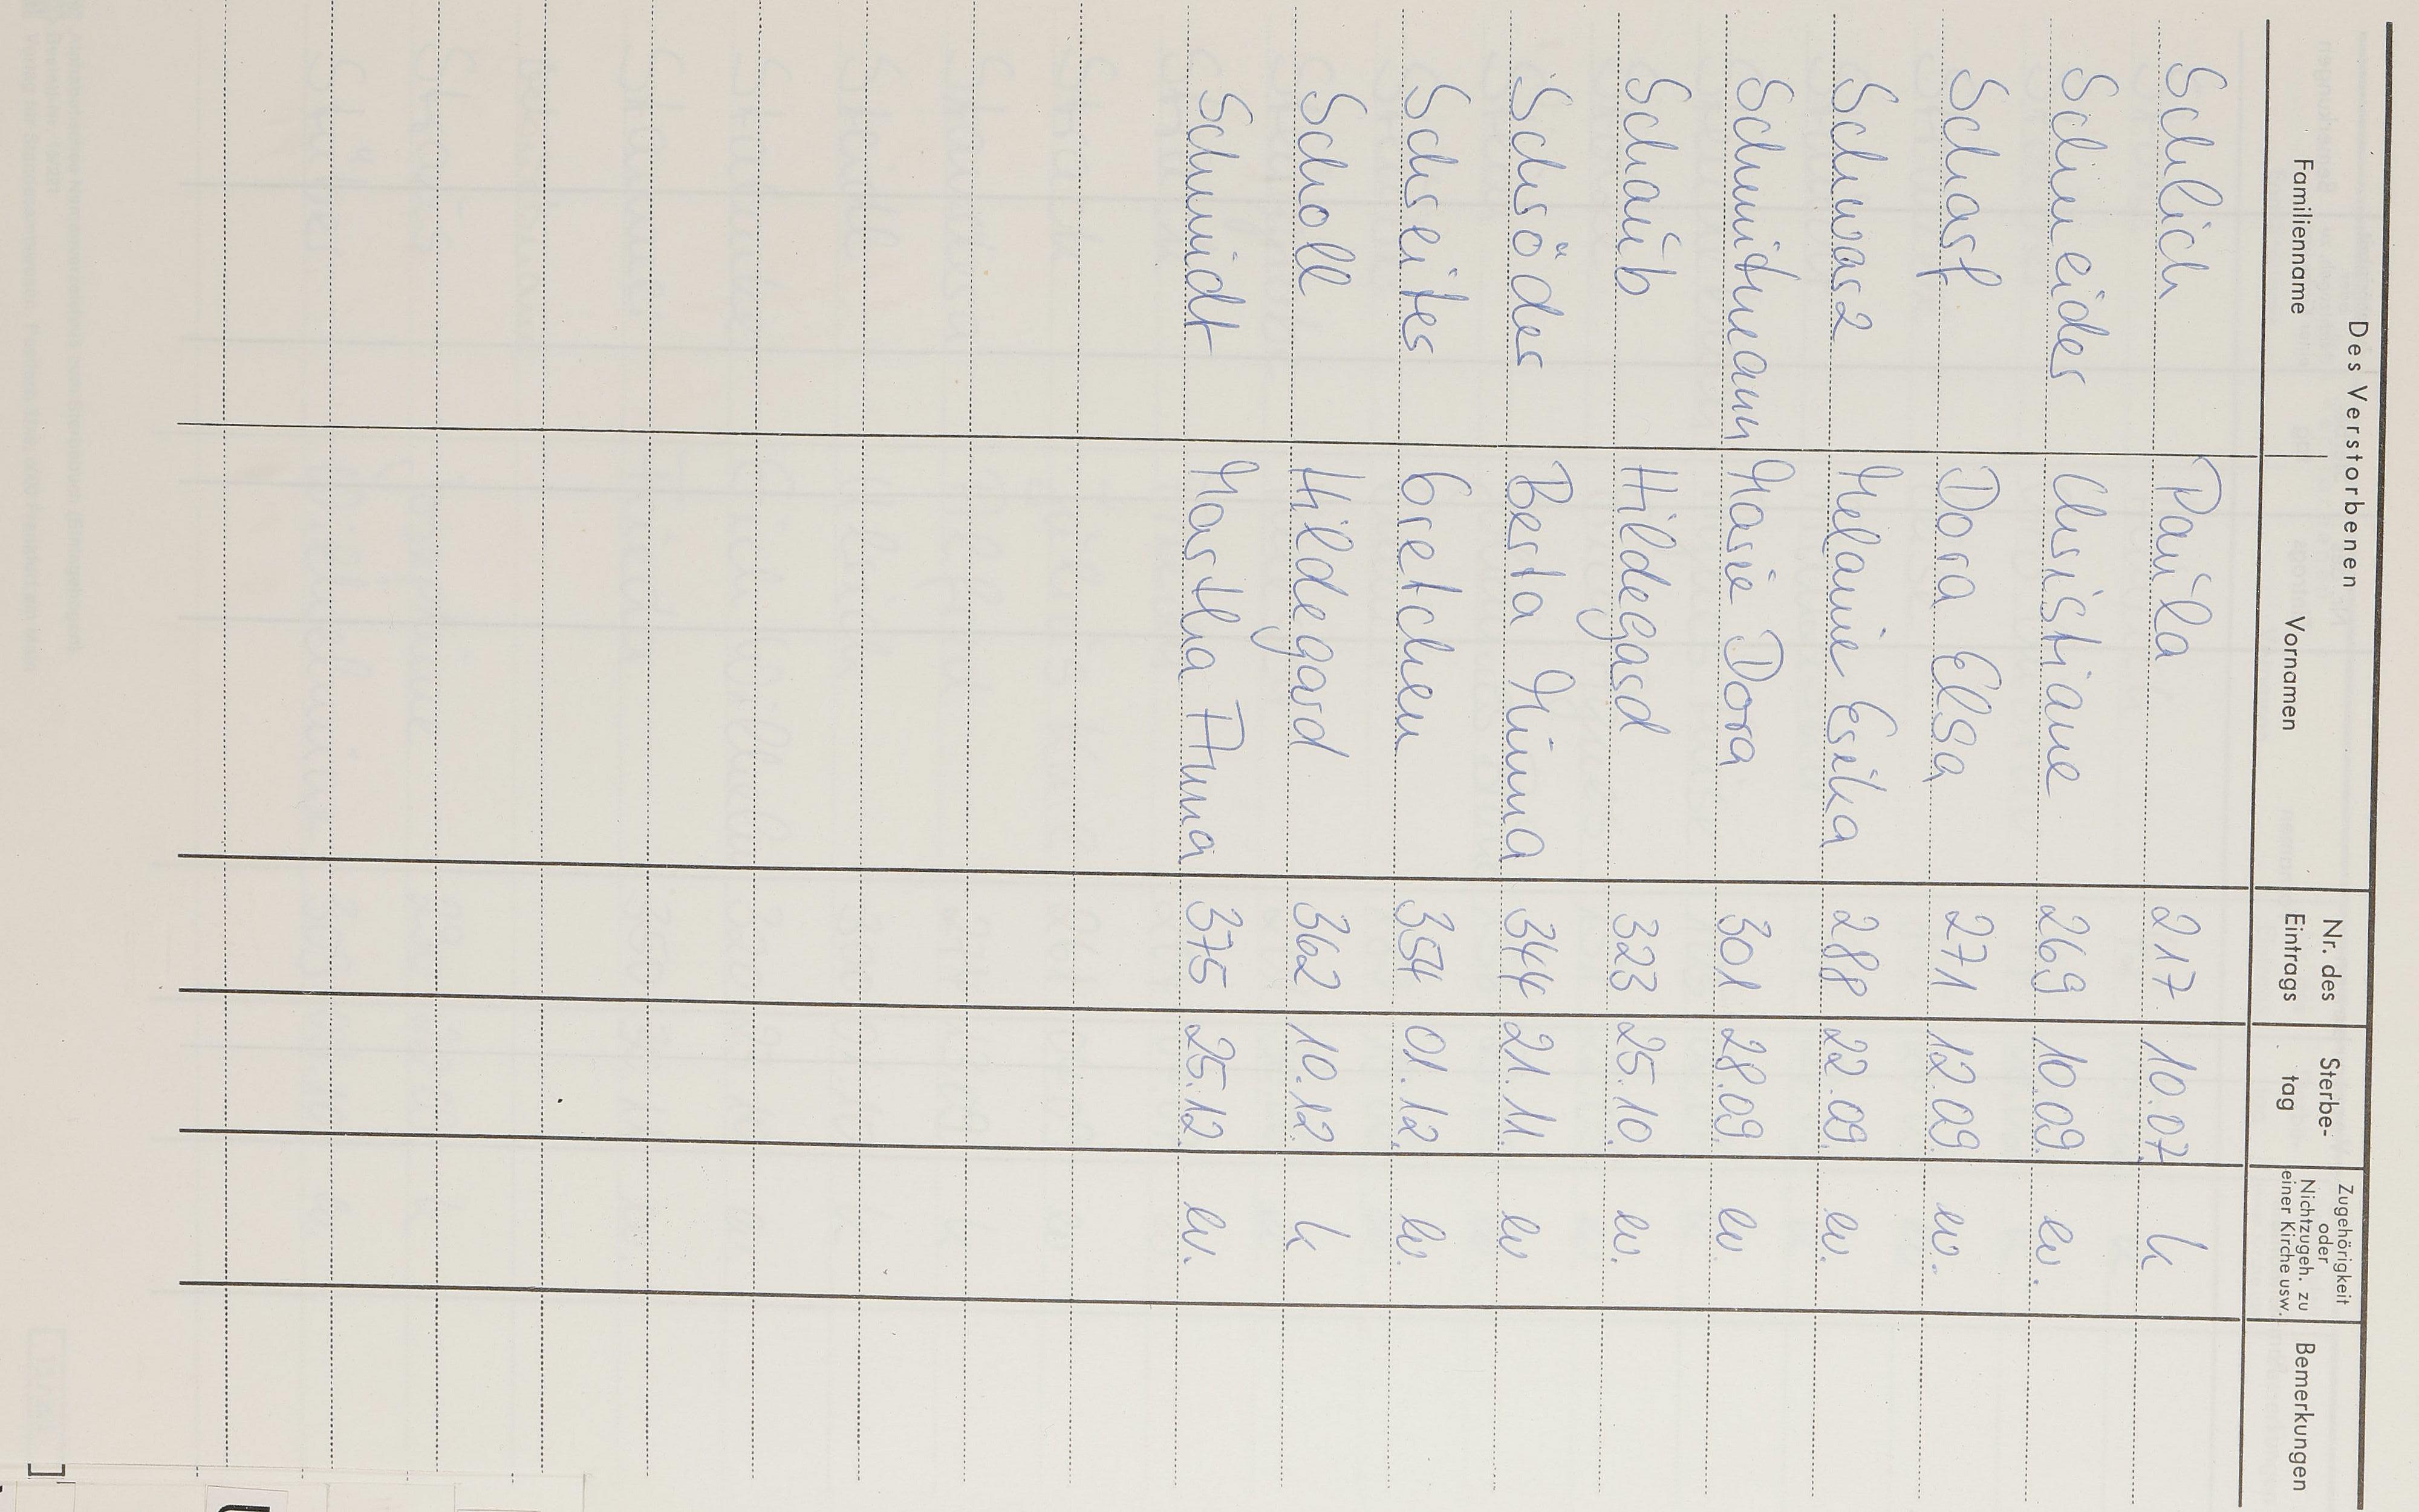 Des Verstorbenen
Familienname Vornamen Nr. des Eintrags Sterbe-tag Zugehörigkeit oder Nichtzugeh. zu einer Kirche usw. Bemerkungen
Schlich Paula 217 10.07. k
Schneider Christiane 269 10.09. ev.
Scharf Dora Elsa 271 12.09. ev.
Schwarz Melanie Erika 288 22.09. ev.
Schmitmann Marie Dora 301 28.09. ev.
Schaub Hildegard 323 25.10. ev.
Schröder Berta Minna 344 21.11. ev
Schreiter Gretchen 354 01.12. ev.
Scholl Hildegard 362 10.12. k
Schmidt Martha Anna 375 25.12. ev.